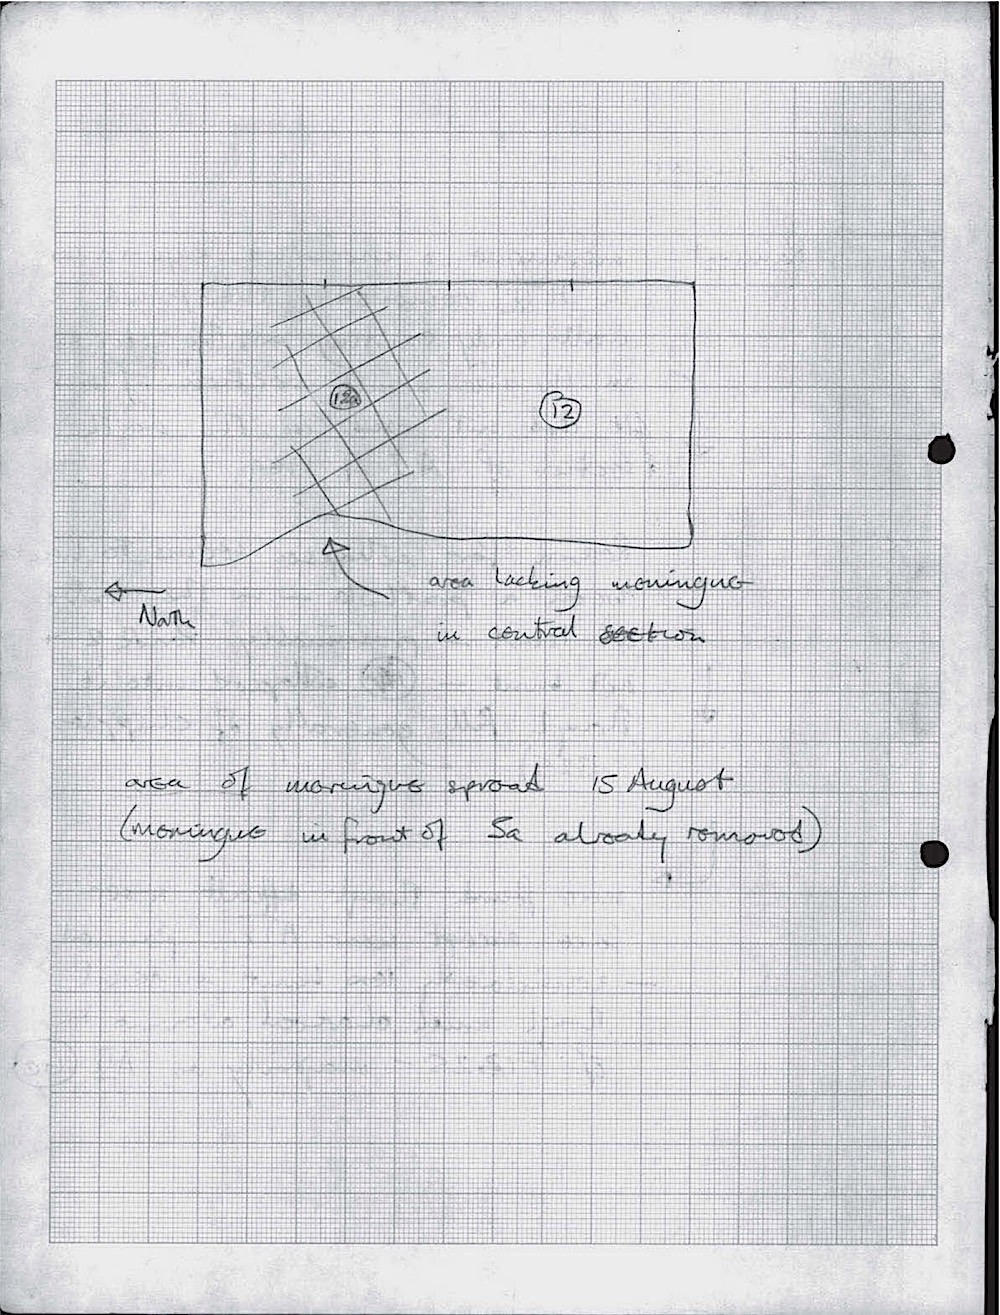 12a
12
area lacking meringue
in central section
North
area of meringue spread 15 August
(meringue in front of 5a already removed)